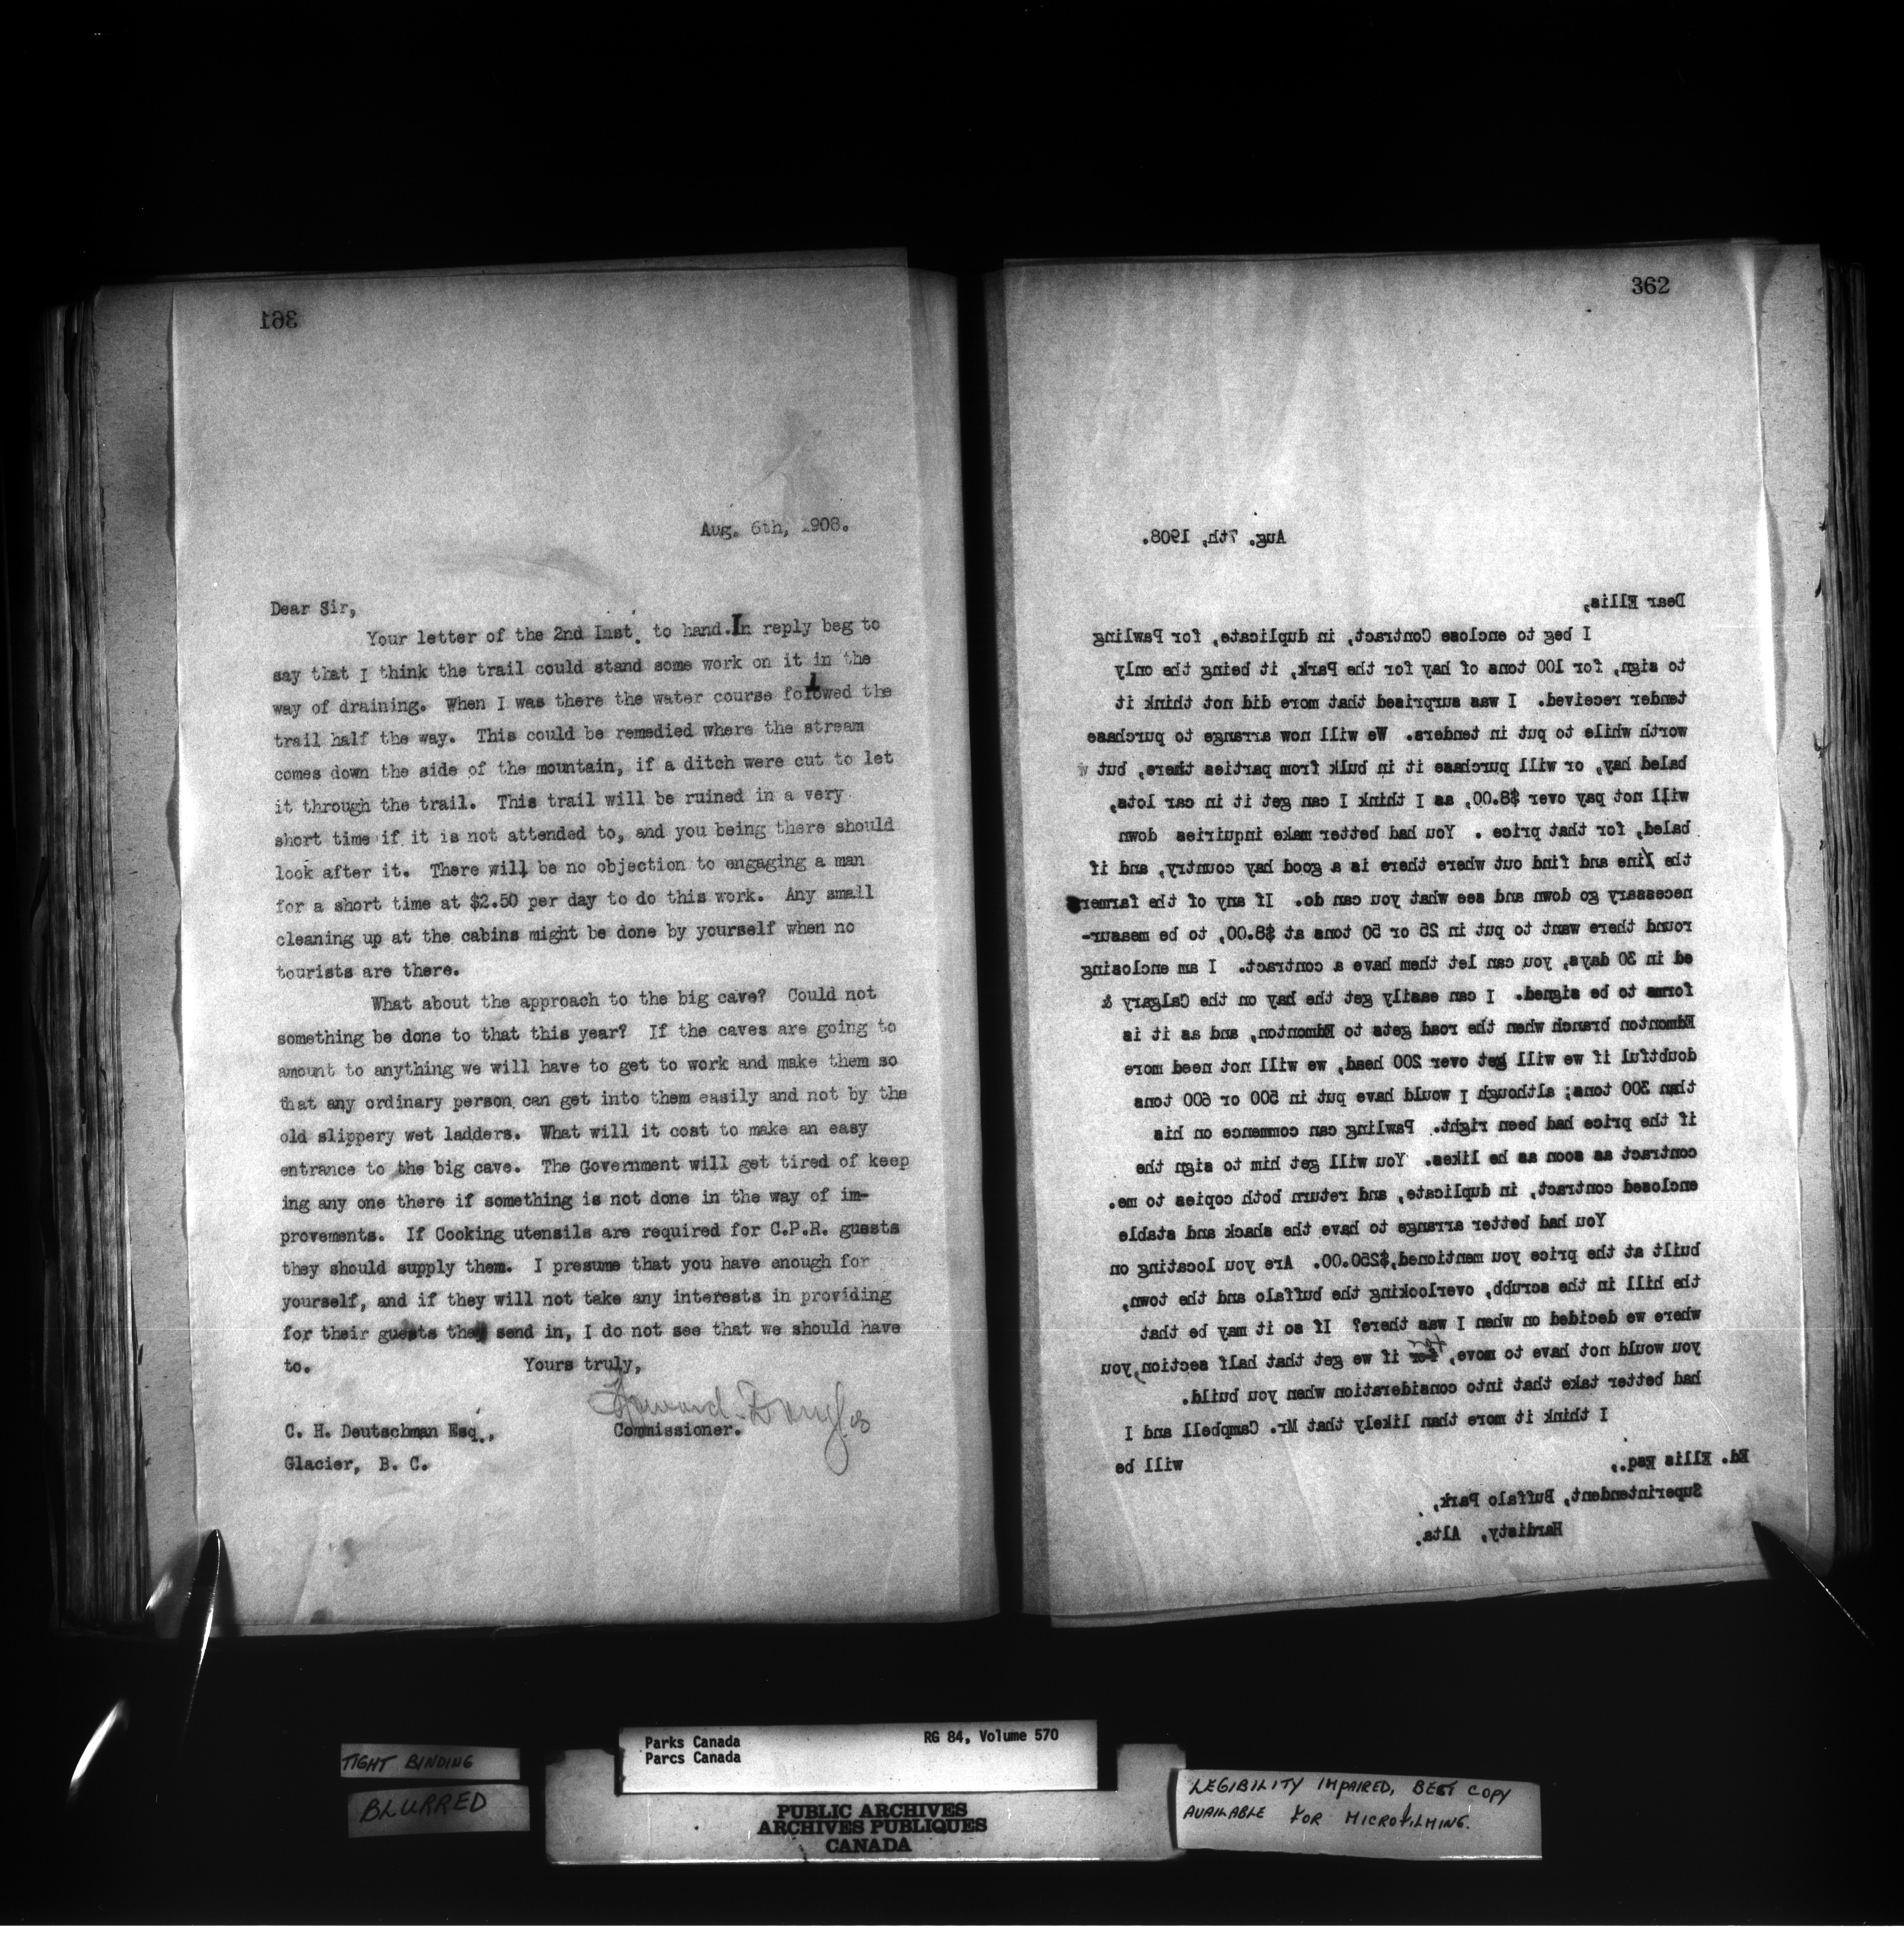 361
Aug. 6th, 1908.
Dear Sir,
Your letter of the 2nd Inst. to hand. In reply beg to
say that I think the trail could stand some work on it in the
way of draining. When I was there the water course folowed the
trail half the way. This could be remedied where the stream
comes down the side of the mountain, if a ditch were cut to let
it through the trail. This trail will be ruined in a very
short time if it is not attended to, and you being there should
look after it. There will be no objection to engaging a man
for a short time at $2.50 per day to do this work. Any small
cleaning up at the cabins might be done by yourself when no
tourists are there.
What about the approach to the big cave? Could not
something be done to that this year? If the caves are going to
amount to anything we will have to get to work and make them so
that any ordinary person can get into them easily and not by the
old slippery wet ladders. What will it cost to make an easy
entrance to the big cave. The Government will get tired of keep
ing any one there if something is not done in the way of im-
provements. If Cooking utensils are required for C.P.R. guests
they should supply them. I presume that you have enough for
yourself, and if they will not take any interests in providing
for their guests they send in, I do not see that we should have
to. Yours truly,
Howard Douglas
Commissioner.
C. H. Deutschman Esq.,
Glacier, B. C.
362
Aug. 7th, 1908.
Dear Ellis,
I beg to enclose Contract, in duplicate, for Pawling
to sign, for 100 tons of hay for the Park, it being the only
tender received. I was surprised that more did not think it
worth while to put in tenders. We will now arrange to purchase
baled hay, or will purchase it in bulk from parties there, but w
will not pay over $8.00, as I think I can get it in car lots,
baled, for that price . You had better make inquiries down
the line and find out where there is a good hay country, and if
necessary go down and see what you can do. If any of the farmers
round there want to put in 25 or 50 tons at $8.00, to be measur-
ed in 30 days, you can let them have a contract. I am enclosing
forms to be signed. I can easily get the hay on the Calgary &
Edmonton branch when the road gets to Edmonton, and as it is
doubtful if we will get over 200 head, we will not need more
than 300 tons; although I would have put in 500 or 600 tons
if the price had been right. Pawling can commence on his
contract as soon as he likes. You will get him to sign the
enclosed contract, in duplicate, and return both copies to me.
You had better arrange to have the shack and stable
built at the price you mentioned,$250.00. Are you locating on
the hill in the scrubb, overlooking the buffalo and the town,
where we decided on when I was there? If so it may be that
you would not have to move, for if we get that half section, you
had better take that into consideration when you build.
I think it more than likely that Mr. Campbell and I
will be
Ed. Ellis Esq.,
Superintendent, Buffalo Park,
Hardisty, Alta.
TIGHT BINDING
BLURRED
Parks Canada RG 84, Volume 570
Parcs Canada
PUBLIC ARCHIVES
ARCHIVES PUBLIQUES
CANADA
LEGIBILITY IMPAIRED, BEST COPY
AVAILABLE FOR MICROFILMING.